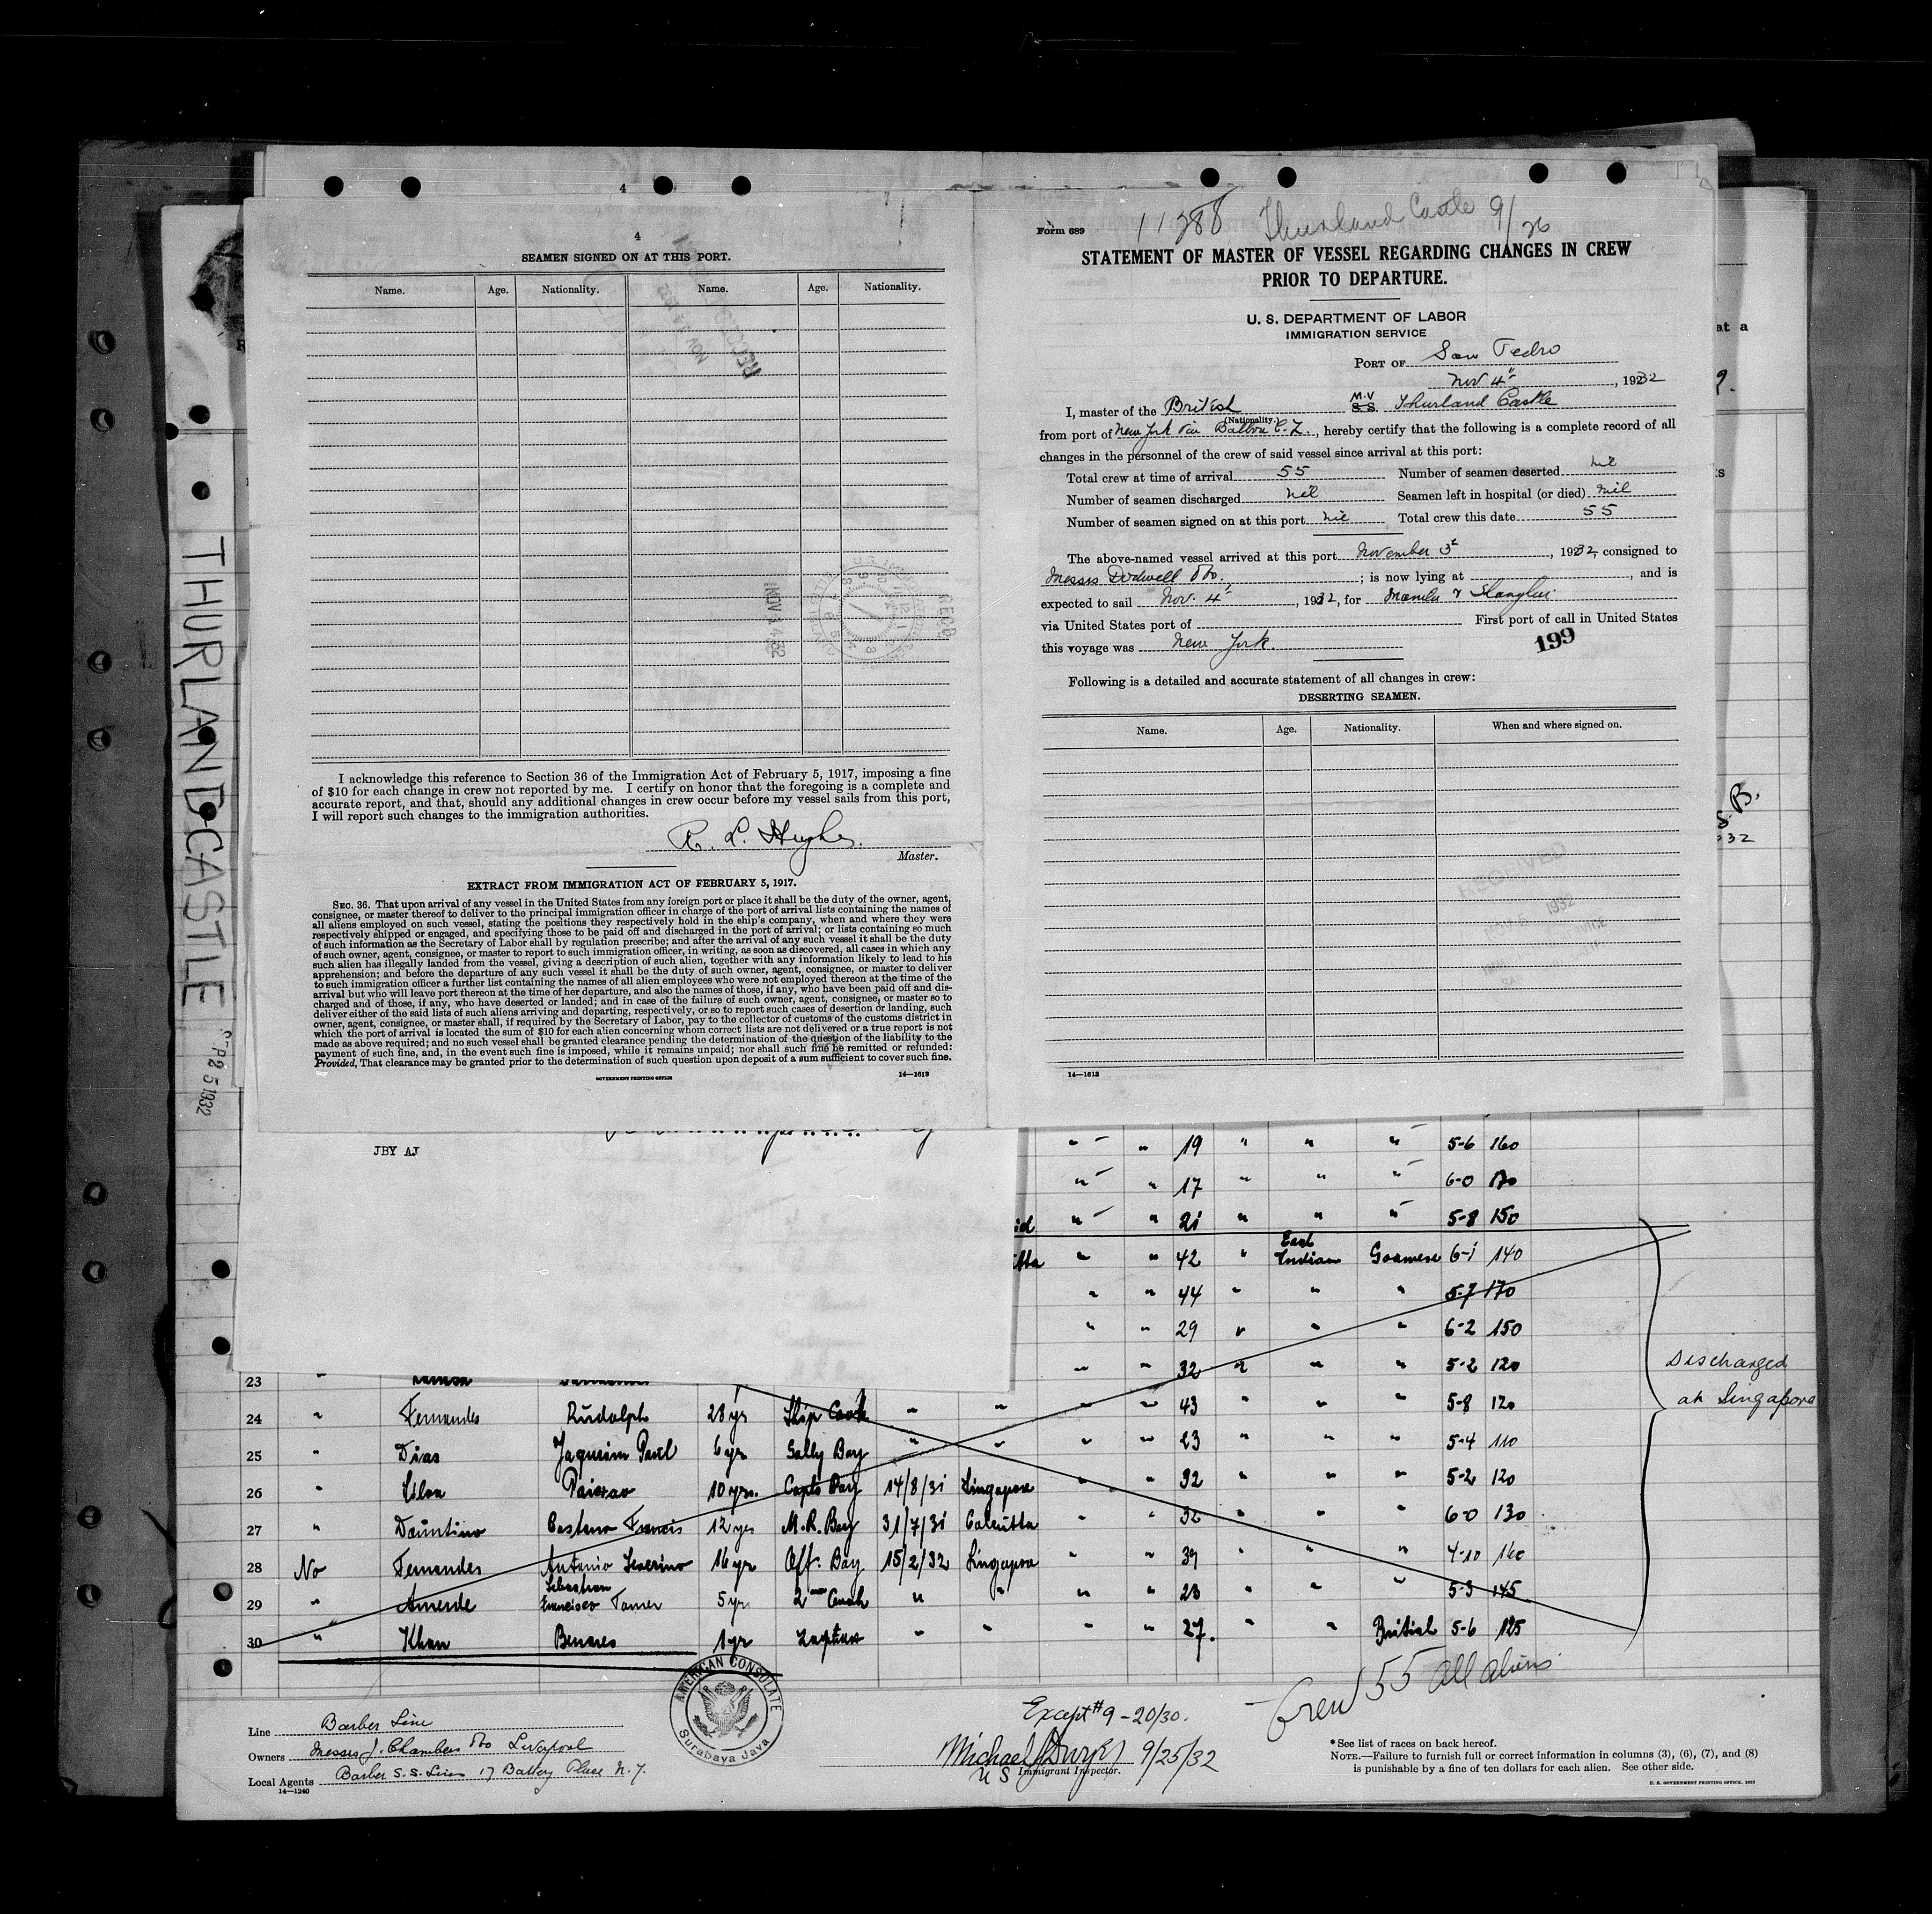 4
4
SEAMEN SIGNED ON AT THIS PORT.
Name. Age. Nationality. Name. Age. Nationality.
REC'D
NOV 14 1932
I acknowledge this reference to Section 36 of the Immigration Act of February 5, 1917, imposing a fine
of $10 for each change in crew not reported by me. I certify on honor that the foregoing is a complete and
accurate report, and that, should any additional changes in crew occur before my vessel sails from this port,
I will report such changes to the immigration authorities.
R. L. Hughes.
Master.
EXTRACT FROM IMMIGRATION ACT OF FEBRUARY 5, 1917.
SEC. 36. That upon arrival of any vessel in the United States from any foreign port or place it shall be the duty of the owner, agent,
consignee, or master thereof to deliver to the principal immigration officer in charge of the port of arrival lists containing the names of
all aliens employed on such vessel, stating the positions they respectively hold in the ship's company, when and where they were
respectively shipped or engaged, and specifying those to be paid off and discharged in the port of arrival; or lists containing so much
of such information as the Secretary of Labor shall by regulation prescribe; and after the arrival of any such vessel it shall be the duty
of such owner, agent, consignee, or master to report to such immigration officer, in writing, as soon as discovered, all cases in which any
such alien has illegally landed from the vessel, giving a description of such alien, together with any information likely to lead to his
apprehension; and before the departure of any such vessel it shall be the duty of such owner, agent, consignee, or master to deliver
to such immigration officer a further list containing the names of all alien employees who were not employed thereon at the time of the
arrival but who will leave port thereon at the time of her departure, and also the names of those, if any, who have been paid off and dis-
charged and of those, if any, who have deserted or landed; and in case of the failure of such owner, agent, consignee, or master so to
deliver either of the said lists of such aliens arriving and departing, respectively, or so to report such cases of desertion or landing, such
owner, agent, consignee, or master shall, if required by the Secretary of Labor, pay to the collector of customs of the customs district in
which the port of arrival is located the sum of $10 for each alien concerning whom correct lists are not delivered or a true report is not
made as above required; and no such vessel shall be granted clearance pending the determination of the question of the liability to the
payment of such fine, and, in the event such fine is imposed, while it remains unpaid; nor shall such fine be remitted or refunded:
Provided, That clearance may be granted prior to the determination of such question upon deposit of a sum sufficient to cover such fine.
GOVERNMENT PRINTING OFFICE 14—1613
Form 689
11288 Thurland Castle 9/26
STATEMENT OF MASTER OF VESSEL REGARDING CHANGES IN CREW
PRIOR TO DEPARTURE.
U. S. DEPARTMENT OF LABOR
IMMIGRATION SERVICE
PORT OF San Pedro
Nov 4", 1932
I, master of the British M.V S.S. Thurland Castle
(Nationality)
from port of New York via Balboa C.Z., hereby certify that the following is a complete record of all
changes in the personnel of the crew of said vessel since arrival at this port:
Total crew at time of arrival 55 Number of seamen deserted nil
Number of seamen discharged nil Seamen left in hospital (or died) nil
Number of seamen signed on at this port nil Total crew this date 55
The above-named vessel arrived at this port November 3, 1932, consigned to
Messrs Dodwell & Co.; is now lying at , and is
expected to sail Nov. 4, 1932, for Manila & Shanghai
via United States port of First port of call in United States
this voyage was New York.
199
Following is a detailed and accurate statement of all changes in crew:
DESERTING SEAMEN.
Name. Age. Nationality. When and where signed on.
RECEIVED
1932
14—1613
THURLAND CASTLE
SEP 25 1932
at a
B.
JBY AJ
" " 19 " " " 5-6 160
" " 17 " " " 6-0 170
" " 21 " " " 5-8 150
" " 42 " East Indian Goanese 6-1 140
" " 44 " " " 5-7 170
" " 29 " " " 6-2 150
23 " " " 32 " " " 5-2 120
24 " Fernandes Rudolph 28 yr Ship Cook " " " " 43 " " " 5-8 120
25 " Dias Jaqueim Paul 6 yr Gally Boy " " " " 23 " " " 5-4 110
26 " Silva Paixao 10 yrs. Capts Boy 14/8/31 Singapore " " 32 " " " 5-2 120
27 " Dauntino Castano Francis 12 yrs M.R. Boy 31/7/31 Calcutta " " 32 " " " 6-0 130
28 No Fernandes Antonio Severino 16 yr Off. Boy 15/2/32 Singapore " " 39 " " " 4-10 140
29 " Sebastian Francisco 5 yr 2nd Cook " " " " 23 " " " 5-3 145
30 " Khan Benares 1 yr " " " " 27. " " British 5-6 125
Discharged
at Singapore
Crew 55 all aliens
AMERICAN CONSULATE
Surabaya Java
Line Barber Line
Owners Messrs J. Chambers & Co Liverpool
Local Agents Barber S.S. Lines 17 Battery Place N.Y.
14—1240
Except #9 - 20/30.
Michael J Dwyer 9/25/32
U S Immigrant Inspector.
*See list of races on back hereof.
NOTE.—Failure to furnish full or correct information in columns (3), (6), (7), and (8)
is punishable by a fine of ten dollars for each alien. See other side.
U. S. GOVERNMENT PRINTING OFFICE